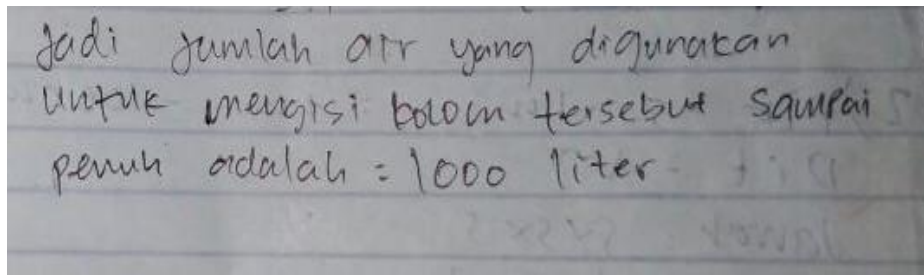 Jadi Jumlah air yang digunakan
untuk mengisi kolom tersebut sampai
penuh adalah = 1000 liter